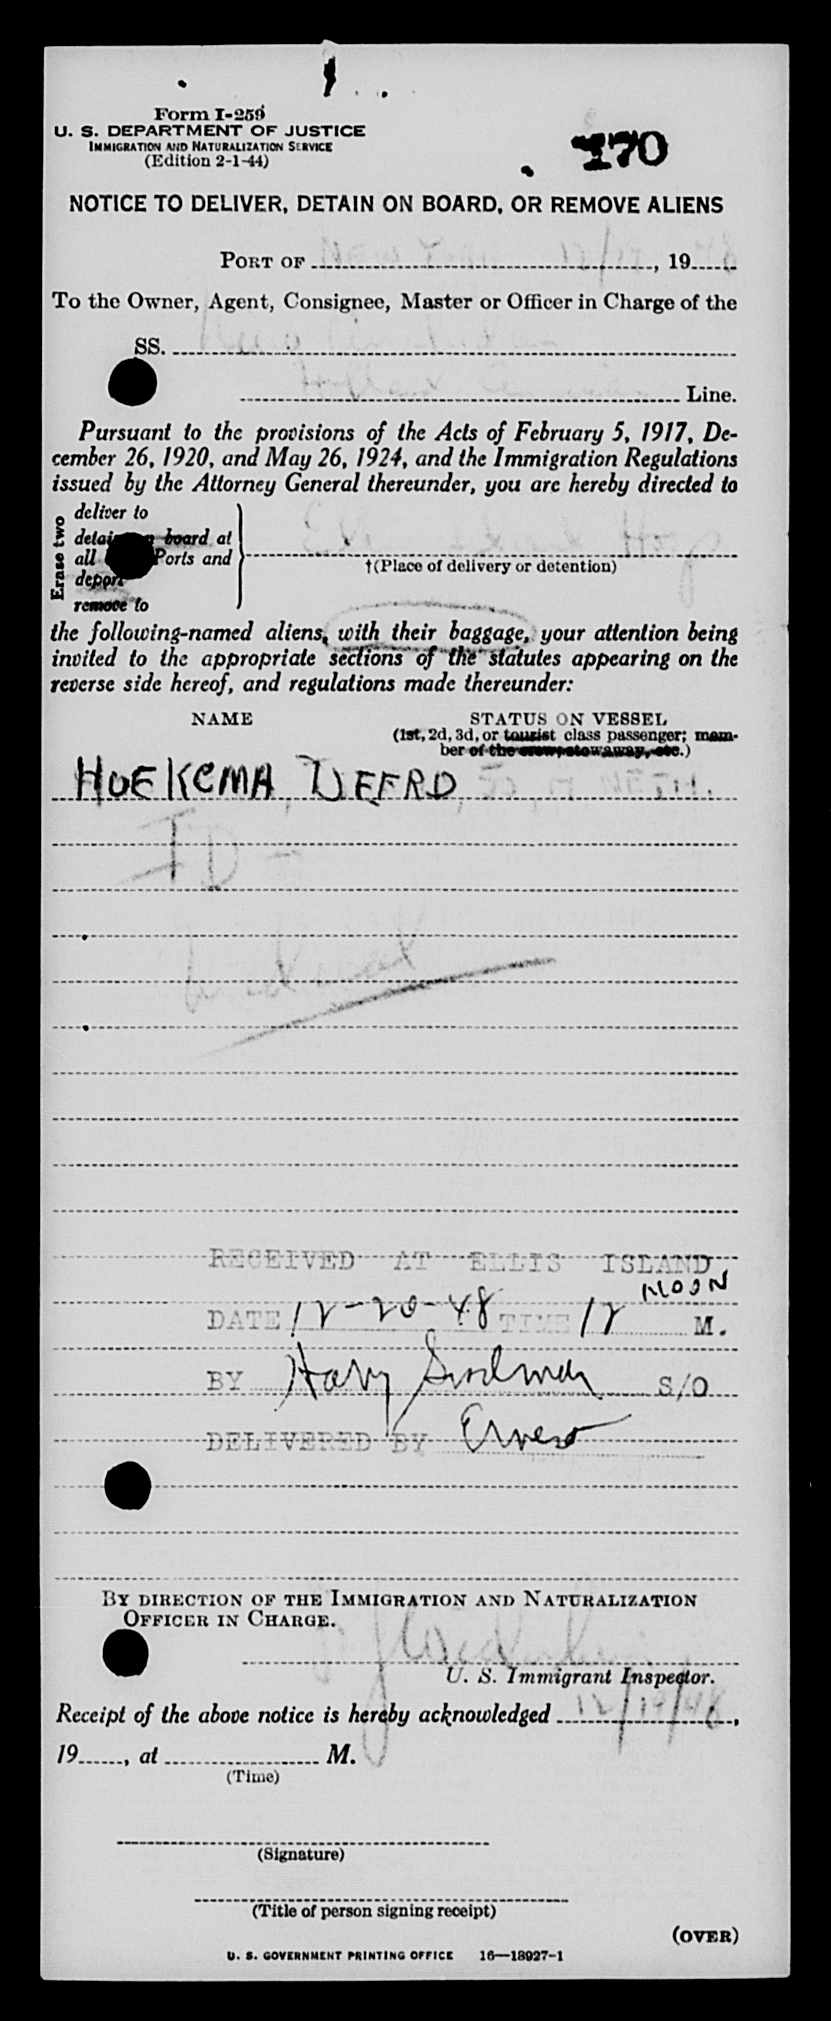 Form I-259
U. S. DEPARTMENT OF JUSTICE
IMMIGRATION AND NATURALIZATION SERVICE
(Edition 2-1-44)
170
NOTICE TO DELIVER, DETAIN ON BOARD, OR REMOVE ALIENS
PORT OF , 19
To the Owner, Agent, Consignee, Master or Officer in Charge of the
SS.
Line.
Pursuant to the provisions of the Acts of February 5, 1917, De-
cember 26, 1920, and May 26, 1924, and the Immigration Regulations
issued by the Attorney General thereunder, you are hereby directed to
Erase two
deliver to
board at
all Ports and
deport
remove to
†(Place of delivery or detention)
the following-named aliens, with their baggage, your attention being
invited to the appropriate sections of the statutes appearing on the
reverse side hereof, and regulations made thereunder:
NAME STATUS ON VESSEL
(1st, 2d, 3d, or tourist class passenger; mem-
ber of the crew, stowaway, etc.)
HOEKEMA, DEERD
ID -
RECEIVED AT ELLIS ISLAND
NOON
DATE 12-20-48 TIME 12 M.
BY Harry S/O
DELIVERED BY
BY DIRECTION OF THE IMMIGRATION AND NATURALIZATION
OFFICER IN CHARGE.
U. S. Immigrant Inspector.
Receipt of the above notice is hereby acknowledged 12/19/48,
19 , at M.
(Time)
(Signature)
(Title of person signing receipt)
(OVER)
U. S. GOVERNMENT PRINTING OFFICE 16—18927-1